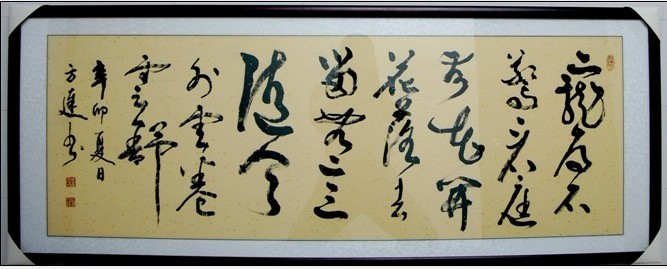 寵辱不
驚看庭
前花開
花落去
留無意
隨天
外雲卷
雲舒
辛卯夏日
方書